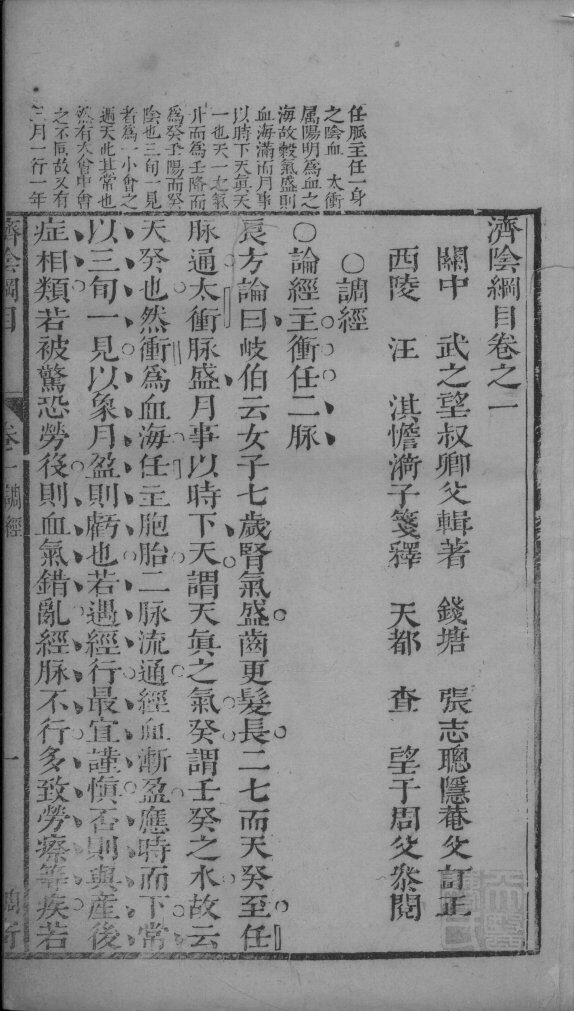 任脈主任一身
之陰血太衝
属陽明為血之
海故穀氣盛則
血海滿而月事
以時下天真天
一也天一之氣
升而為壬降而
為癸壬陽而癸
陰也三旬一見
者為一小會之
週天此其常也
然有大會中會
之不同故又有
三月一行一年
濟陰綱目卷之一
關中 武之望叔卿父輯著 錢塘 張志聰隱菴父訂正
西陵 汪 淇憺漪子箋釋 天都 查 望于周父參閱
○調經
○論經主衝任二脈
良方論曰岐伯云女子七歲腎氣盛齒更髮長二七而天癸至任
脈通太衝脈盛月事以時下天謂天眞之氣癸謂壬癸之水故云
天癸也然衝為血海任主胞胎二脈流通經血漸盈應時而下常
以三旬一見以象月盈則虧也若遇經行最宜謹愼否則與產後
症相類若被驚恐勞役則血氣錯亂經脈不行多致勞瘵等疾若
濟陰綱目 卷一 調經 一